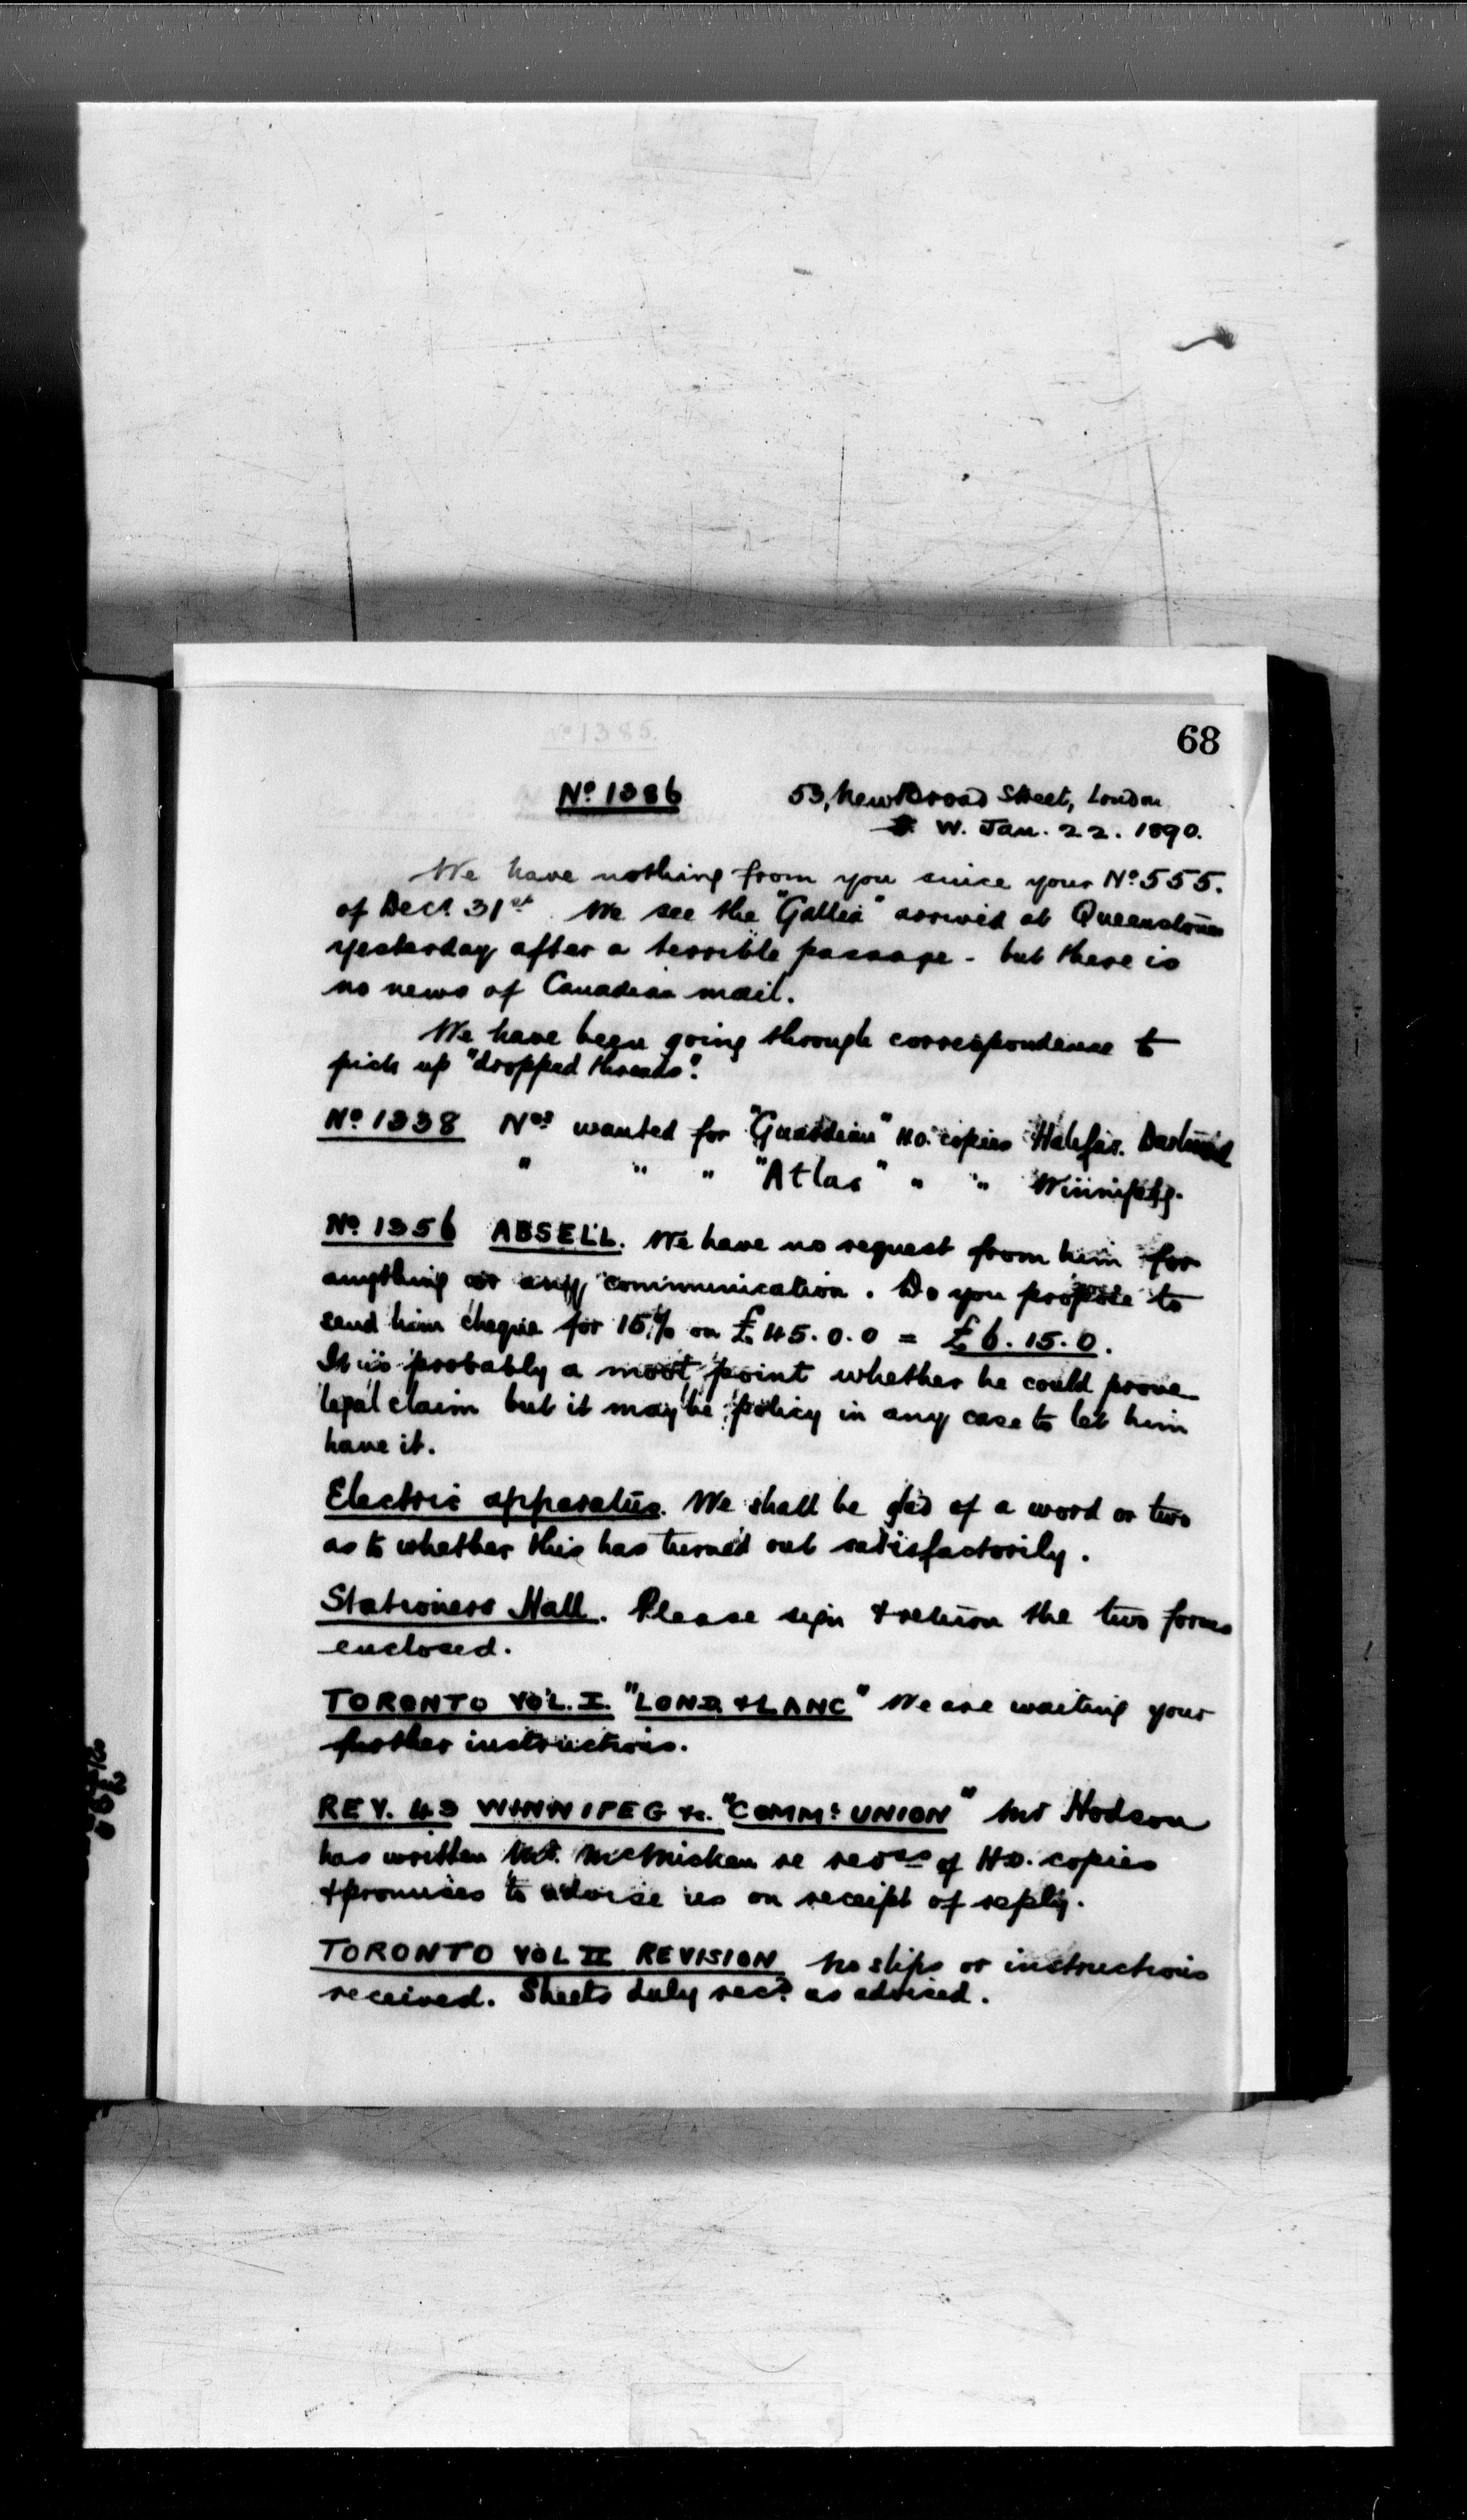 68
No 1386
53, New Broad Street, London
W. Jan. 22. 1890.
We have nothing from you since your No 555.
of Decr 31st. We see the "Gallia" arrived at Queenstown
yesterday after a terrible passage - but there is
no news of Canadian mail.
We have been going through correspondence to
pick up "dropped threads".
No 1338 Nos wanted for "Guardian" H.O. copies Halifax. Dartmouth
" " " "Atlas" " " Winnipeg.
No 1356 ABSELL. We have no request from him for
anything or any communication. Do you propose to
send him cheque for 15% on £45.0.0 = £6.15.0.
It is probably a moot point whether he could prove
legal claim but it may be policy in any case to let him
have it.
Electric apparatus. We shall be glad of a word or two
as to whether this has turned out satisfactorily.
Stationers Hall. Please sign & return the two forms
enclosed.
TORONTO VOL. I. "LOND & LANC" We are waiting your
further instructions.
REV. 43 WINNIPEG &c. "COMML UNION" Mr Hodson
has written Mr. McMicken re revons of H.O. copies
& promises to advise us on receipt of reply.
TORONTO VOL II REVISION No slips or instructions
received. Sheets duly recd as advised.